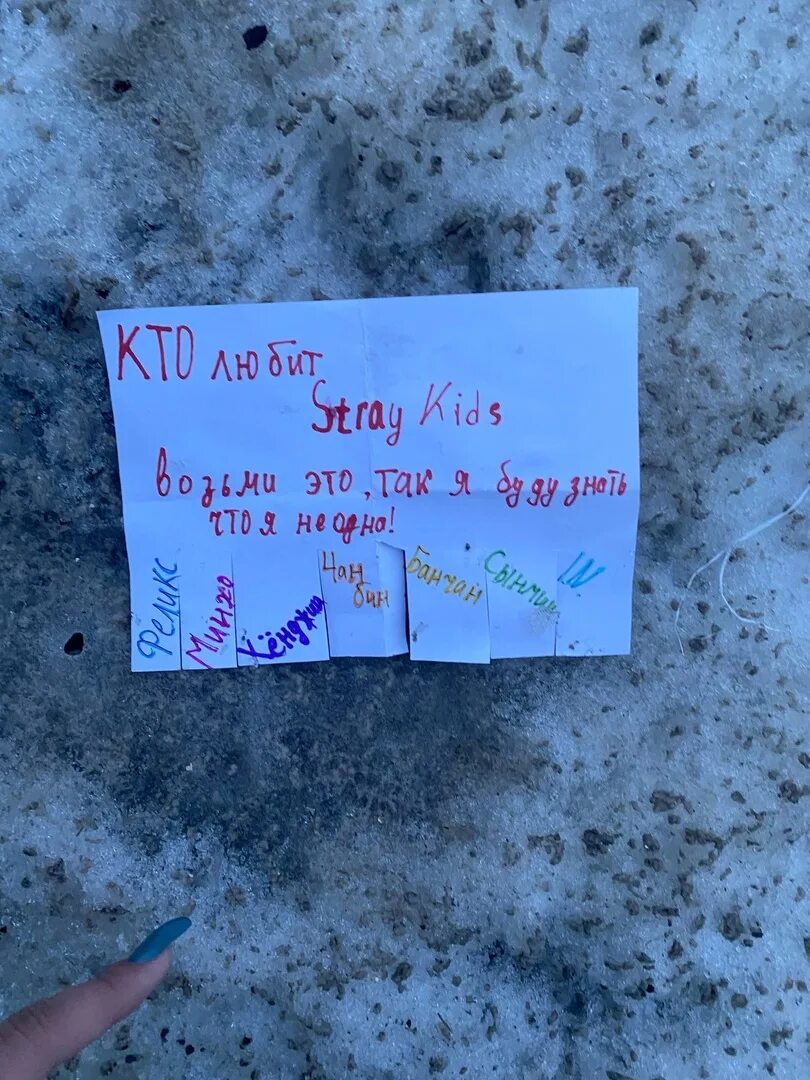 КТО любит
Stray Kids
возьми это, так я буду знать
что я не одна!
Феликс
Минхо
Хёнджин
Чан
бин
Банчан
Сынмин
IN